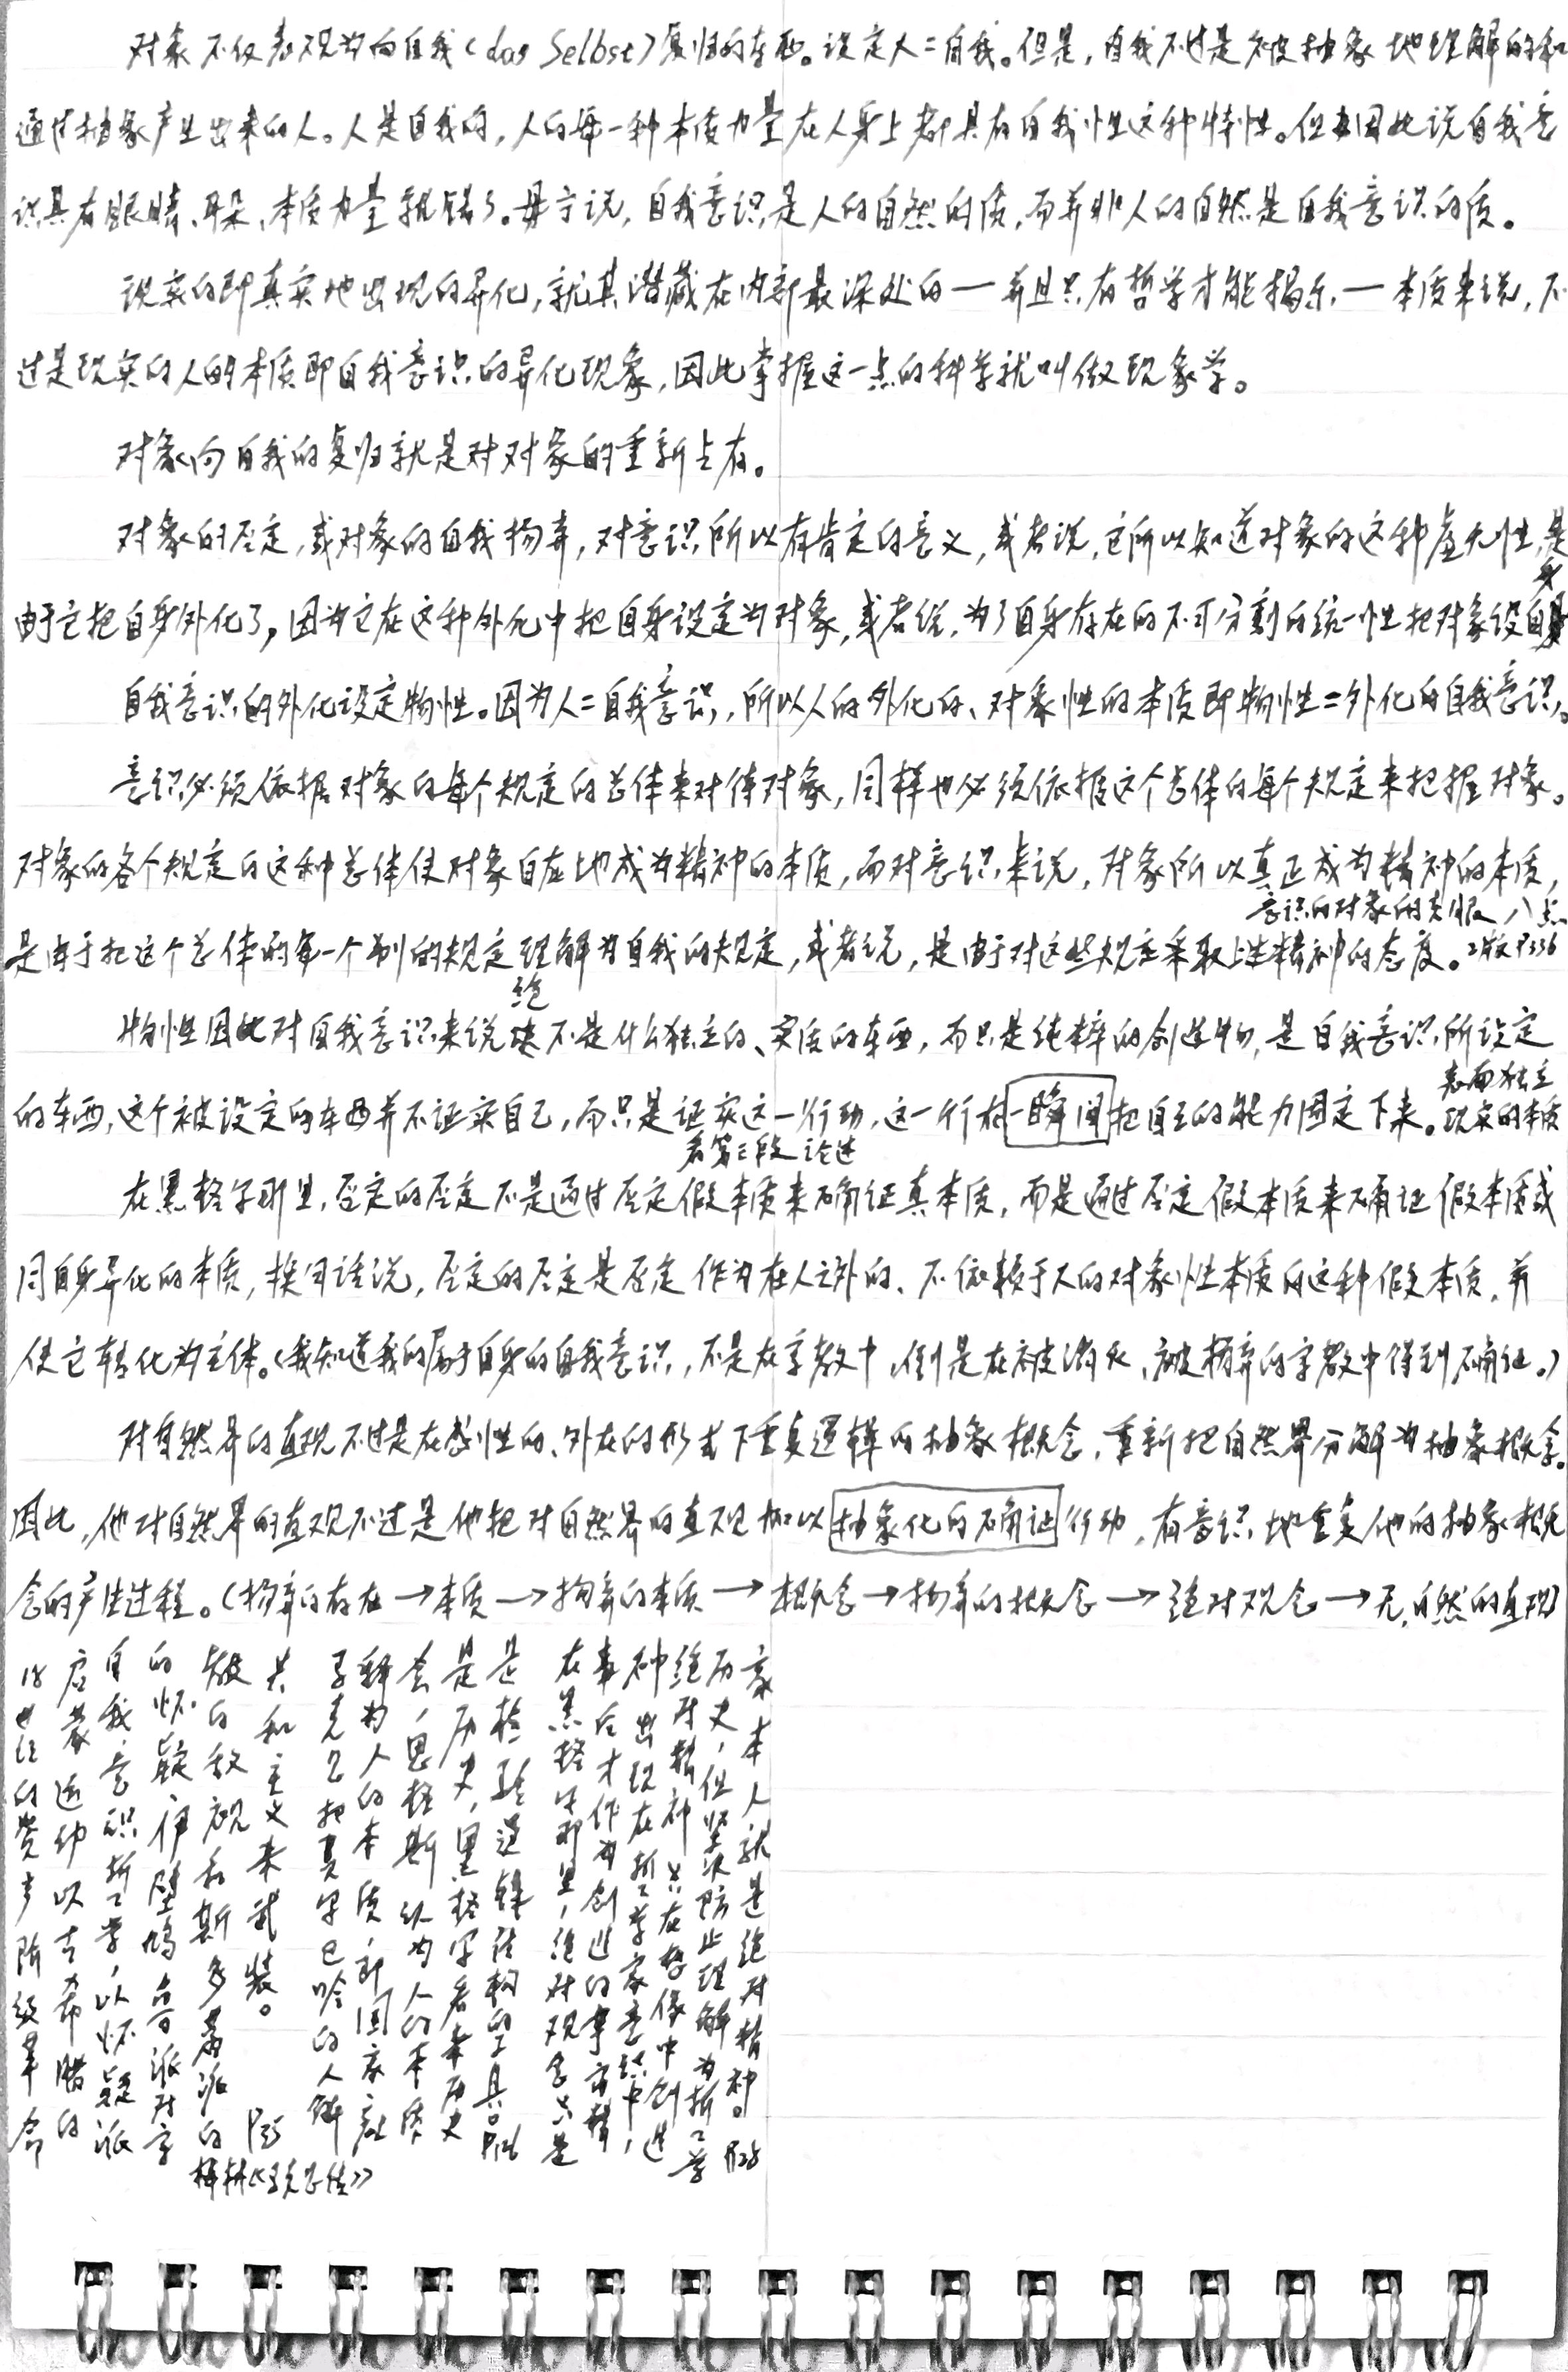 对象不仅表现为向自我（das Selbst）复归的东西。设定人＝自我。但是，自我不过是被抽象地理解的和
通过抽象产生出来的人。人是自我的，人的每一种本质力量在人身上都具有自我性这种特性。但因此说自我意
识具有眼睛、耳朵、本质力量就错了。毋宁说，自我意识是人的自然的质，而并非人的自然是自我意识的质。
现实的即真实地出现的异化，就其潜藏在内部最深处的—并且只有哲学才能揭示—本质来说，不
过是现实的人的本质即自我意识的异化现象，因此掌握这一点的科学就叫做现象学。
对象向自我的复归就是对对象的重新占有。
对象的否定，或对象的自我扬弃，对意识所以有肯定的意义，或者说，它所以知道对象的这种虚无性，是
由于它把自身外化了，因为它在这种外化中把自身设定为对象，或者说，为了自身存在的不可分割的统一性把对象设自身
自我意识的外化设定物性。因为人＝自我意识，所以人的外化的、对象性的本质即物性＝外化的自我意识。
意识必须依据对象的每个规定的总体来对待对象，同样也必须依据这个总体的每个规定来把握对象。
对象的各个规定的这种总体使对象自在地成为精神的本质，而对意识来说，对象所以真正成为精神的本质，
意识的对象的克服 八点
是由于把这个总体的每一个别的规定理解为自我的规定，或者说，是由于对这些规定采取上述精神的态度。二版P336
绝
物性因此对自我意识来说决不是什么独立的、实质的东西，而只是纯粹的创造物，是自我意识所设定
表面独立
的东西，这个被设定的东西并不证实自己，而只是证实这一行动，这一行动一瞬间把自己的能力固定下来。现实的本质
看第三段论述
在黑格尔那里，否定的否定不是通过否定假本质来确证真本质，而是通过否定假本质来确证假本质或
同自身异化的本质，换句话说，否定的否定是否定作为在人之外的、不依赖于人的对象性本质的这种假本质，并
使它转化为主体。（我知道我的属于自身的自我意识，不是在宗教中，倒是在被消灭、被扬弃的宗教中得到确证。）
对自然界的直观不过是在感性的、外在的形式下重复逻辑的抽象概念，重新把自然界分解为抽象概念。
因此，他对自然界的直观不过是他把对自然界的直观加以抽象化的确证行动，有意识地重复他的抽象概
念的产生过程。（扬弃的存在→本质→扬弃的本质→概念→扬弃的概念→绝对观念→无，自然的直观）
家本人就是绝对精神。P128
历史，但坚决防止理解为哲学
绝对精神只在想像中创造
神出现在哲学家意识中，
事后才作为创造的宇宙精
在黑格尔那里，绝对观念只是
是检验逻辑结构的工具。P126
是历史，黑格尔看来历史
会，恩格斯认为人的本质
释为人的本质，即国家社
子克己把莫尔巴哈的人解
共和主义来武装。 P25
极的敌视和斯多葛派的
的怀疑，伊壁鸠鲁派对宗
自我意识哲学，以怀疑派
启蒙运动以古希腊的
18世纪的资产阶级革命